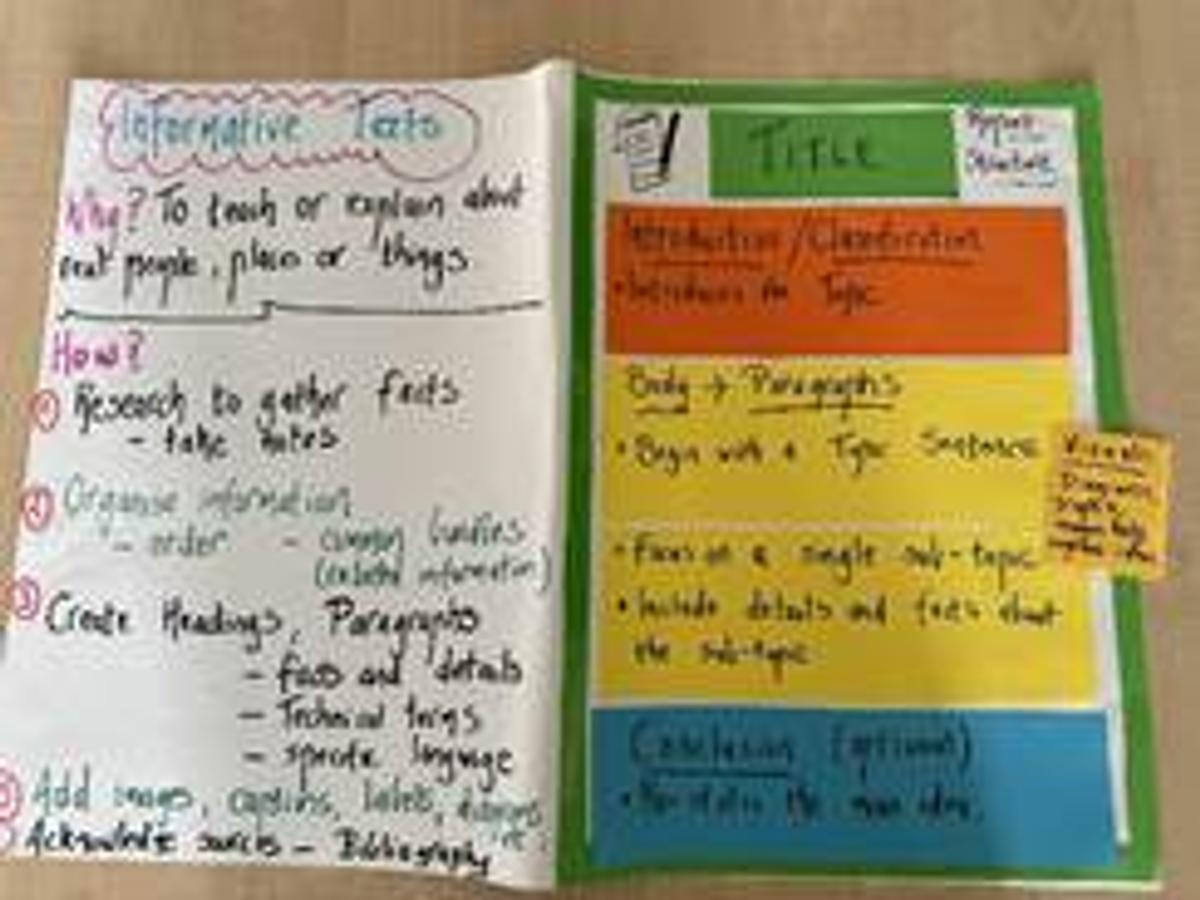 Informative Texts
Why? To teach or explain about
real people, places or things.
How?
① Research to gather facts
- take notes
② Organise information
- order - common
(related information)
③ Create Headings, Paragraphs
- facts and details
- Technical terms
- specific language
Add images, captions, labels, diagrams
Acknowledge sources - Bibliography
TITLE
Report
Structure
Introduction/Classification
• Introduces the Topic
Body → Paragraphs
• Begin with a Topic Sentence
• Focus on a single sub-topic
• Include details and facts about
the sub-topic
Conclusion (optional)
• the main idea.
Visuals
Diagrams